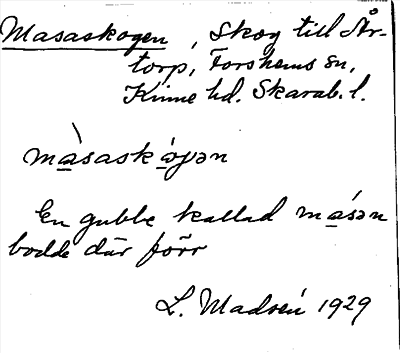 Masaskogen, Skog till År-
torp, Forshems sn,
Kinne hd. Skarab. l.
màsaskó̱gən
En gubbe kallad má̱sən
bodde där förr
L. Madsén 1929